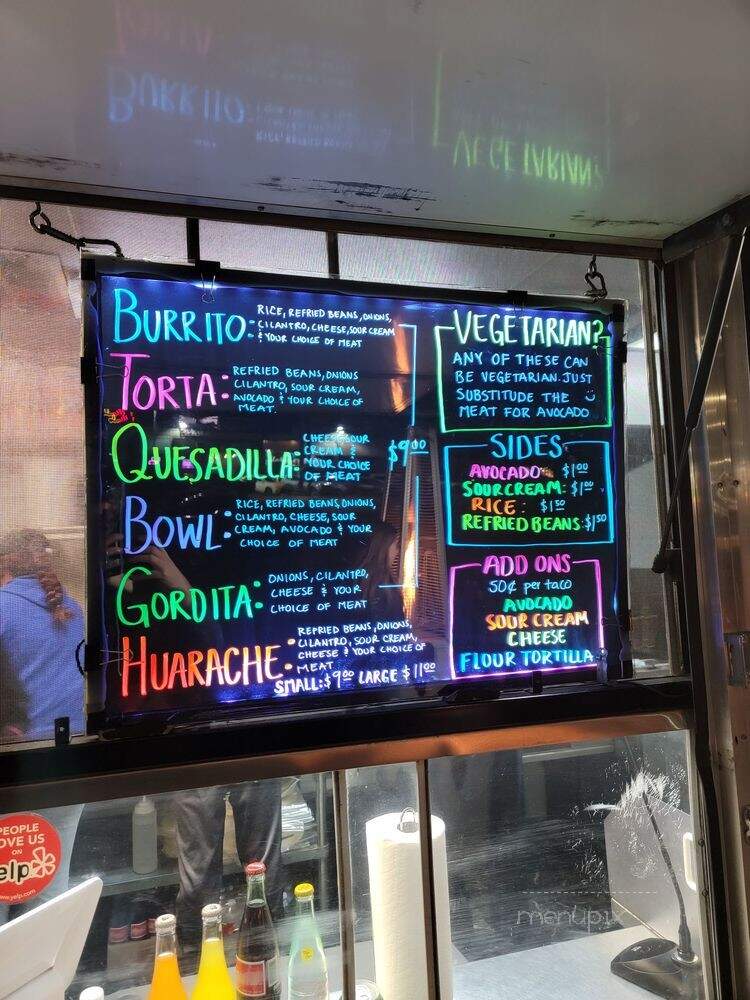 BURRITO: RICE, REFRIED BEANS, ONIONS,
CILANTRO, CHEESE, SOUR CREAM
& YOUR CHOICE OF MEAT
TORTA: REFRIED BEANS, ONIONS
CILANTRO, SOUR CREAM,
AVOCADO & YOUR CHOICE OF
MEAT.
QUESADILLA: CHEESE, SOUR
CREAM &
YOUR CHOICE
OF MEAT
$9.00
BOWL: RICE, REFRIED BEANS, ONIONS,
CILANTRO, CHEESE, SOUR
CREAM, AVOCADO & YOUR
CHOICE OF MEAT
GORDITA: ONIONS, CILANTRO,
CHEESE & YOUR
CHOICE OF MEAT
HUARACHE: REFRIED BEANS, ONIONS,
CILANTRO, SOUR CREAM,
CHEESE & YOUR CHOICE OF
MEAT
SMALL: $9.00 LARGE $11.00
VEGETARIAN?
ANY OF THESE CAN
BE VEGETARIAN. JUST
SUBSTITUTE THE
MEAT FOR AVOCADO
SIDES
AVOCADO $1.00
SOUR CREAM: $1.00
RICE: $1.50
REFRIED BEANS: $1.50
ADD ONS
50¢ per taco
AVOCADO
SOUR CREAM
CHEESE
FLOUR TORTILLA
PEOPLE
OVE US
ON
elp
www.yelp.com
menupix